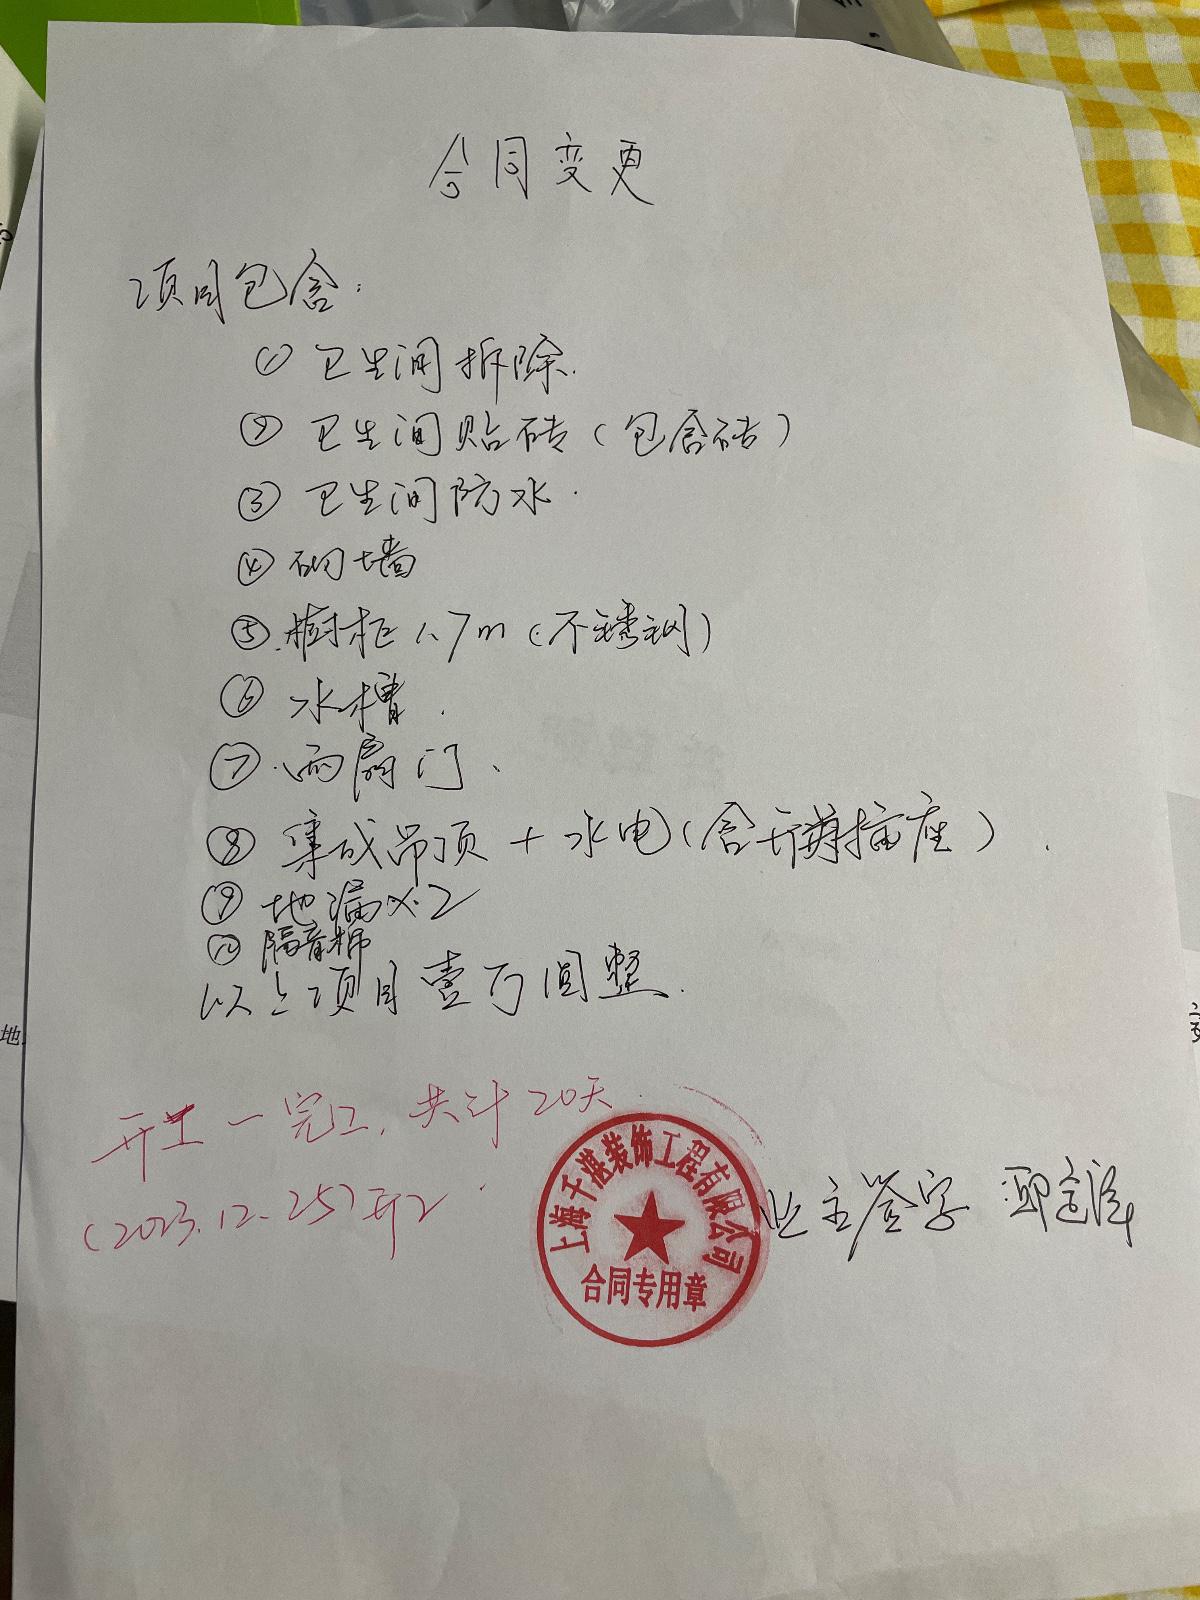 合同变更
项目包含：
① 卫生间拆除.
② 卫生间贴砖（包含砖）
③ 卫生间防水.
④ 砌墙
⑤ 橱柜 1.7m（不锈钢）
⑥ 水槽.
⑦ 两扇门.
⑧ 集成吊顶 + 水电（含开关插座）.
⑨ 地漏×2
⑩ 隔音棉
以上项目壹万圆整.
开工一完工, 共计20天.
（2023.12.25）开工
上海千湛装饰工程有限公司
合同专用章
业主签字
地